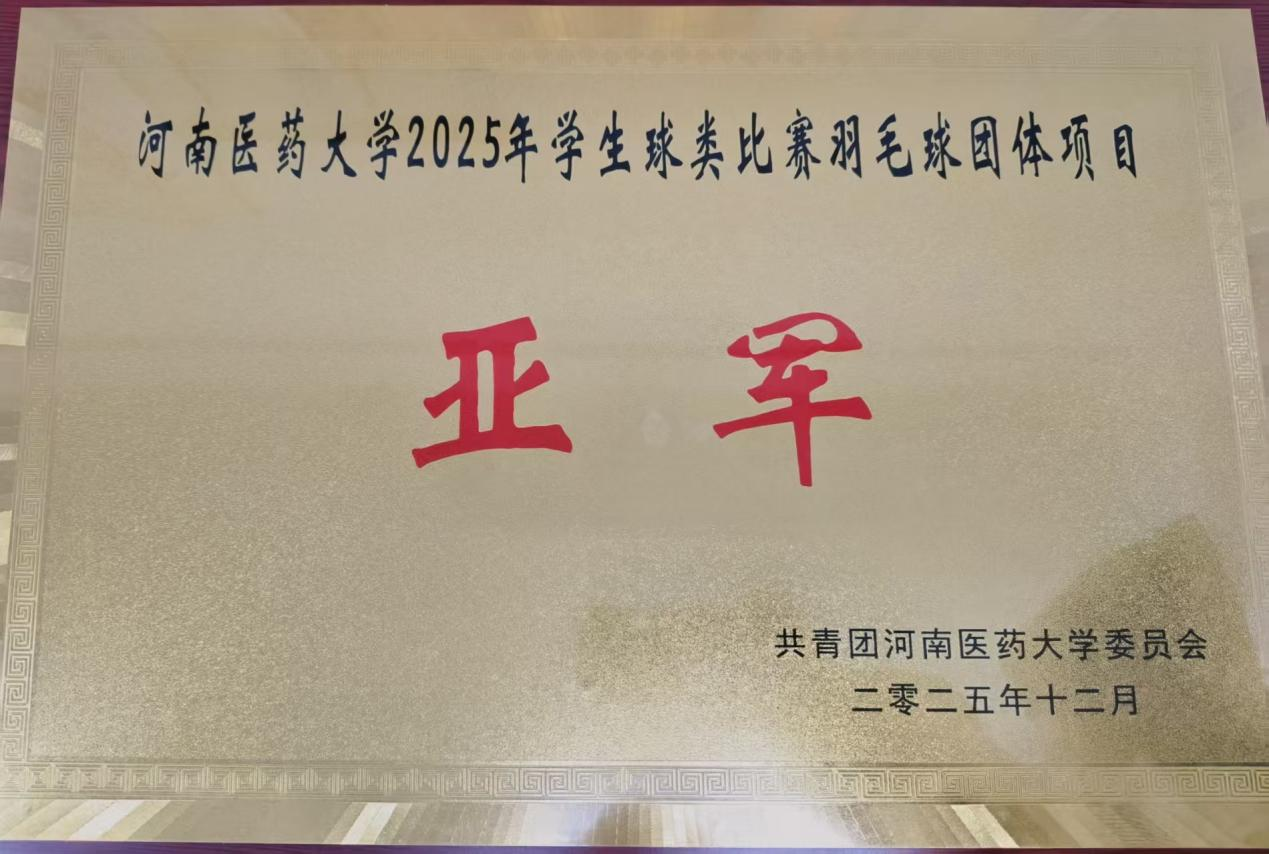 河南医药大学2025年学生球类比赛羽毛球团体项目
亚军
共青团河南医药大学委员会
二零二五年十二月